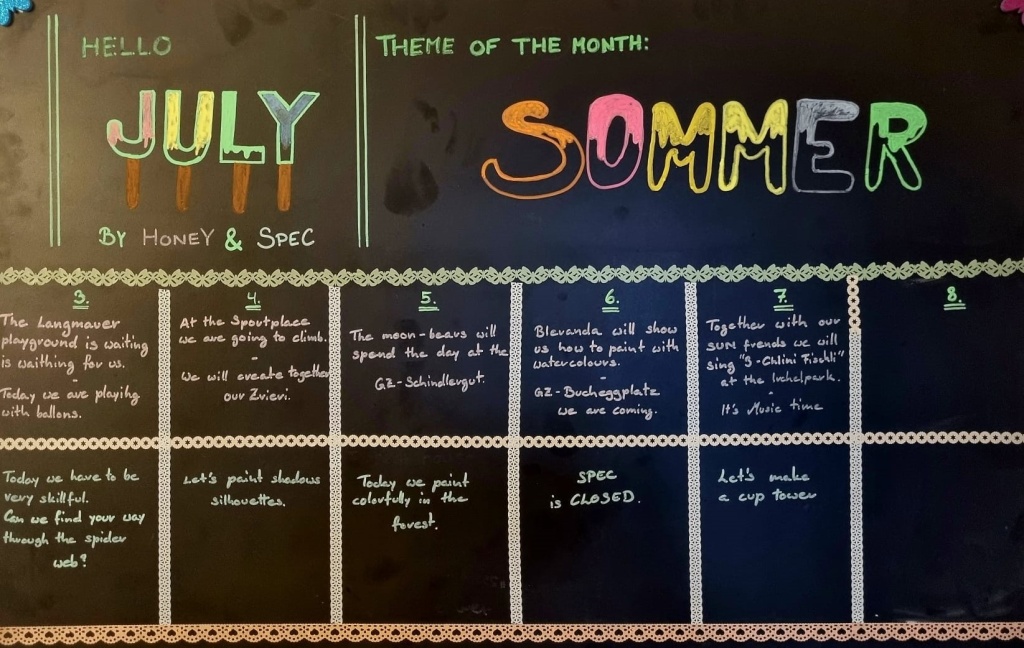 HELLO
JULY
BY HONEY & SPEC
THEME OF THE MONTH:
SOMMER
3.
The Langmauer
playground is waiting
is waithing for us.
-
Today we are playing
with ballons.
4.
At the Spoutplace
we are going to climb.
-
We will create together
our Zvieri.
5.
The moon-bears will
spend the day at the
GZ-Schindlergut.
6.
Blevanda will show
us how to paint with
watercolours.
-
GZ-Bucheggplatz
we are coming.
7.
Together with our
SUN friends we will
sing "3-Chlini Fischli"
at the Irchelpark.
-
It's Music time
8.
Today we have to be
very skillful.
Can we find your way
through the spider
web?
Let's paint shadows
silhouettes.
Today we paint
colorfully in the
forest.
SPEC
is CLOSED.
Let's make
a cup tower